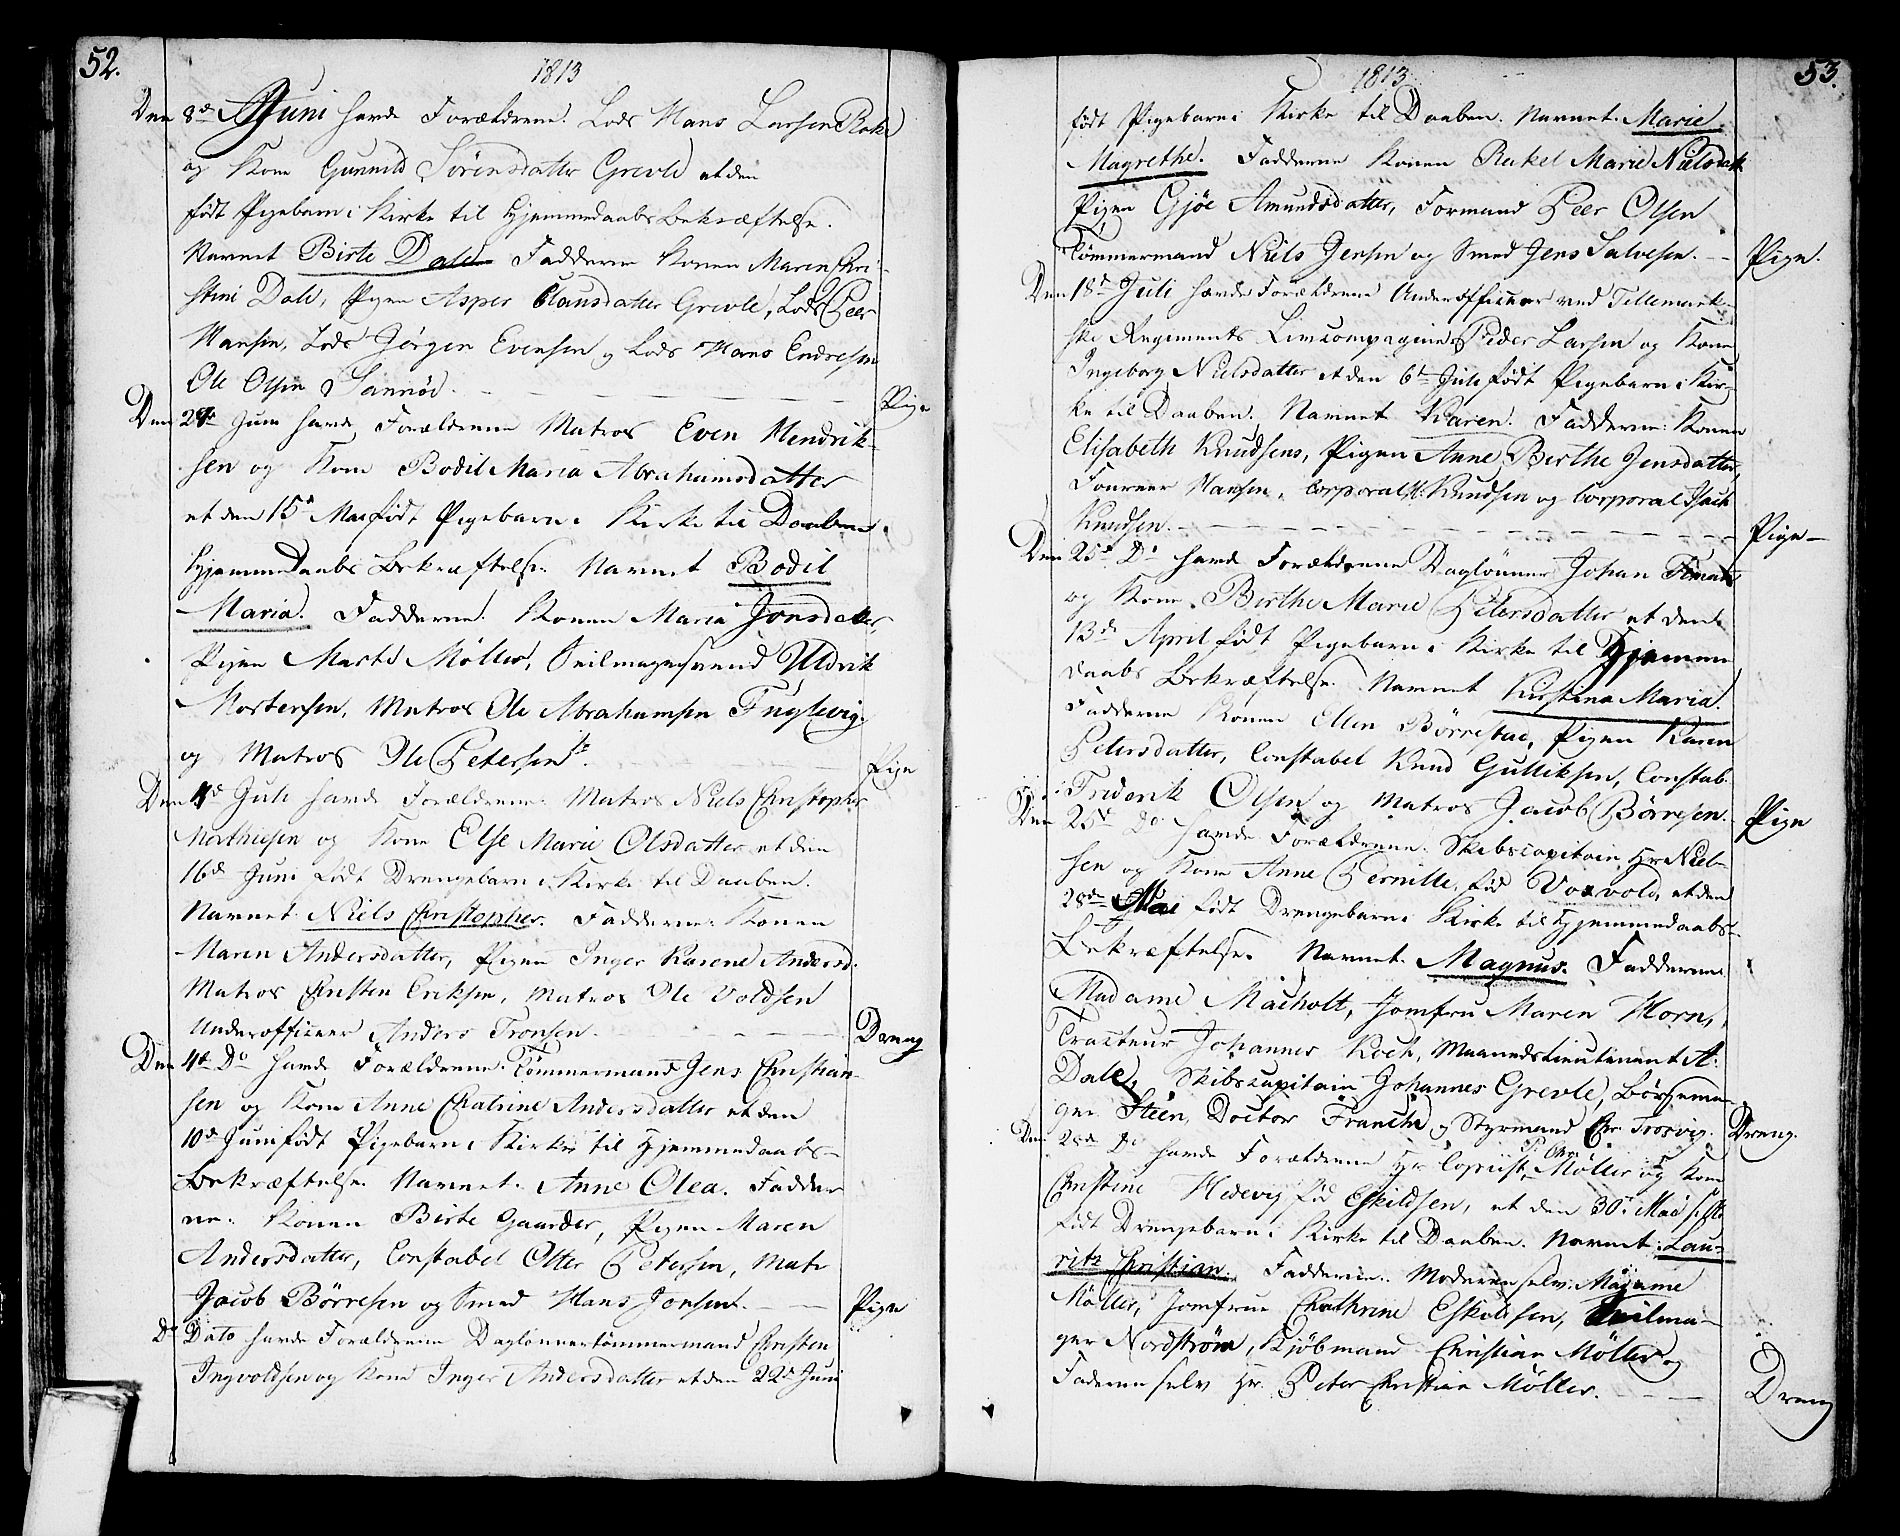 52.
1813
Den 8de Juni havde Forældrene Lods Hans Larsen
og Kone Gunnild Sörensdatter Grevle et den
födt Pigebarn i Kirke til Hjemmedaabs Bekræftelse.
Navnet Birte Dale Fadderne Konen Maren Chri-
stini Dale, Pigen Asper Clausdatter Grevle, Lods Peer
Hansen, Lods Jörgen Evensen og Lods Hans Endresen
Ole Olsen Sannöe. Pige
Den Juni havde Forældrene Matros Even Hendrik-
sen og Kone Bodil Maria Abrahamsdatter
et den 15de Mai födt Pigebarn i Kirke til Daabens
Hjemmedaabs Bekræftelse. Navnet Bodil
Maria. Fadderne. Konen Maria Jonsdatter,
Pigen Marte Möller, Seilmagersvend Uldrik
Mortensen, Matros Ole Abrahamsen Fuglevig
og Matros Ole Petersen. Pige
Den 4de Juli havde Forældrene Matros Niels Christopher
Mathiesen og Kone Else Marie Olsdatter et den
16de Juni födt Drengebarn i Kirke til Daaben.
Navnet Niels Christopher. Fadderne: Konen
Maren Andersdatter, Pigen Inger Karene Andersd.
Matros Christen Eriksen, Matros Ole Voldsen
Underofficeer Anders Tronsen. Dreng
Den 4de Do havde Forældrene Tömmermand Jens Christian-
sen og Kone Anne Chatrine Andersdatter et den
10de Juni födt Pigebarn i Kirke til Hjemmedaabs-
Bekræftelse Navnet. Anne Olea. Fadder
ne: Konen Birte Gaarder, Pigen Maren
Andersdatter, Constabel Otter Petersen, Matr
Jacob Börresen og Smed Hans Jonsen. Pige
Do Dato havde Forældrene Daglönnertömmermand Christen
Ingvoldsen og Kone Inger Andersdatter et den 22de Juni
53.
1813
födt Pigebarn i Kirke til Daaben. Navnet. Marie
Magrethe. Fadderne Konen Rakel Marie Nielsdatt
Pigen Gjöe Amundsdatter, Formand Peer Olsen
Tömmermand Niels Jensen og Smed Jens Salvesen. Pige.
Den 18de Juli havde Forældrene Underofficeer ved Tellemark-
ske Regiments Peder Larsen og Kone
Ingeborg Nielsdatter et den 6te Juli födt Pigebarn i Kir-
ke til Daaben. Navnet Karen. Fadderne: Konen
Elisabeth Knudsens, Pigen Anne Berthe Jensdatter,
Foureer Hansen, Corporal Knudsen og Corporal Isach
Knudsen. Pige
Den 25de Do havde Forældrene Daglönner Johan
og Kone Birthe Marie Petersdatter et den
13de April födt Pigebarn i Kirke til Hjemme
daabs Bekræftelse. Navnet Kirstine Maria.
Fadderne Konen Ellen Börrestad, Pigen Karen
Petersdatter, Constabel Knud Gulliksen, Constab.
Friderik Olsen og Matros Jacob Börresen. Pige
Den 25de Do havde Forældrene. Skibscapitain Hr Niel-
sen og Kone Anne Pernille, föd Voxvold, et den
28de Mai födt Drengebarn i Kirke til Hjemmedaabs-
Bekræftelse. Navnet. Magnus. Fadderne
Madame Macholt, Jomfru Maren Horn,
Tracteur Johannes Koch, Maanedslieutenant A.
Dale, Skibscapitain Johannes Grevle,
Steen, Doctor Franche og Styrmand Chr Trosvig. Dreng.
Den Do havde Forældrene Hr Copiist P. Chr. Möller og Kone
Christine Hedevig föd Eskildsen, et den 30te Mai sidste
födt Drengebarn i Kirke til Daaben. Navnet: Lau-
ritz Christian. Fadderne: Moderen selv. Madame
Möller, Jomfrue Chathrine Eskildsen, Seilma-
ger Nordström, Kjöbmand Christian Möller og
Faderen selv Hr. Peter Christian Möller. Dreng